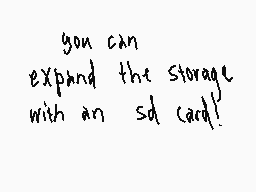 you can
expand the storage
with an sd card!